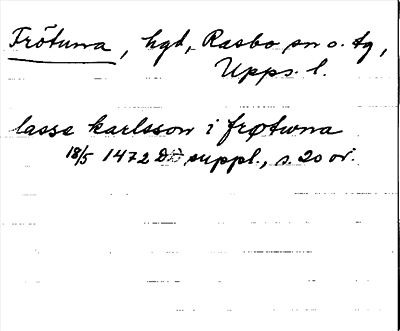 Frötuna, hgd, Rasbo sn o. tg,
Upps. l.
lasse karlsson i frøtwna
18/5 1472 DD suppl., s. 20 or.